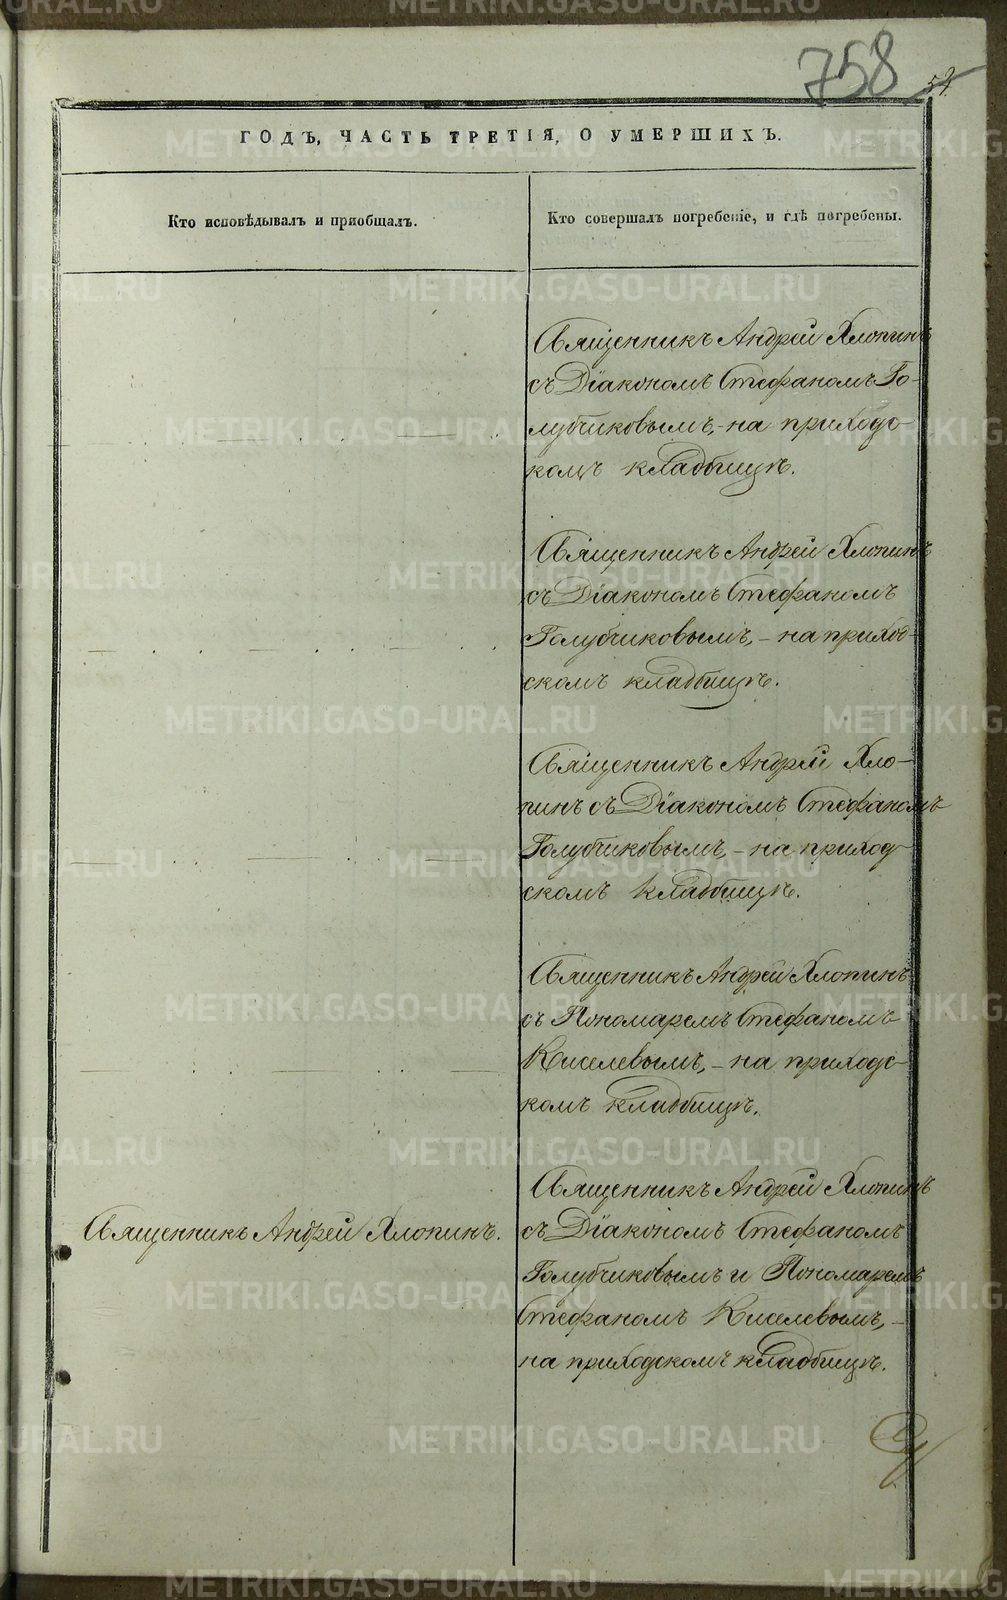 758
ГОДЪ, ЧАСТЬ ТРЕТІЯ, О УМЕРШИХЪ.
Кто исповѣдывалъ и пріобщалъ.
Кто совершалъ погребеніе, и гдѣ погребены.
Священникъ Андрей Хлопинъ
съ Діакономъ Стефаномъ Го-
лубчиковымъ, - на приходс-
комъ кладбищѣ.
Священникъ Андрей Хлопинъ
съ Діакономъ Стефаномъ
Голубчиковымъ, - на приход-
скомъ кладбищѣ.
Священникъ Андрей Хло-
пинъ съ Діакономъ Стефаномъ
Голубчиковымъ, - на приход-
скомъ кладбищѣ.
Священникъ Андрей Хлопинъ
съ Пономаремъ Стефаномъ
Киселевымъ, - на приходс-
комъ кладбищѣ.
Священникъ Андрей Хлопинъ.
Священникъ Андрей Хлопинъ
съ Діакономъ Стефаномъ
Голубчиковымъ и Пономаремъ
Стефаномъ Киселевымъ, -
на приходскомъ кладбищѣ.
METRIKI.GASO-URAL.RU